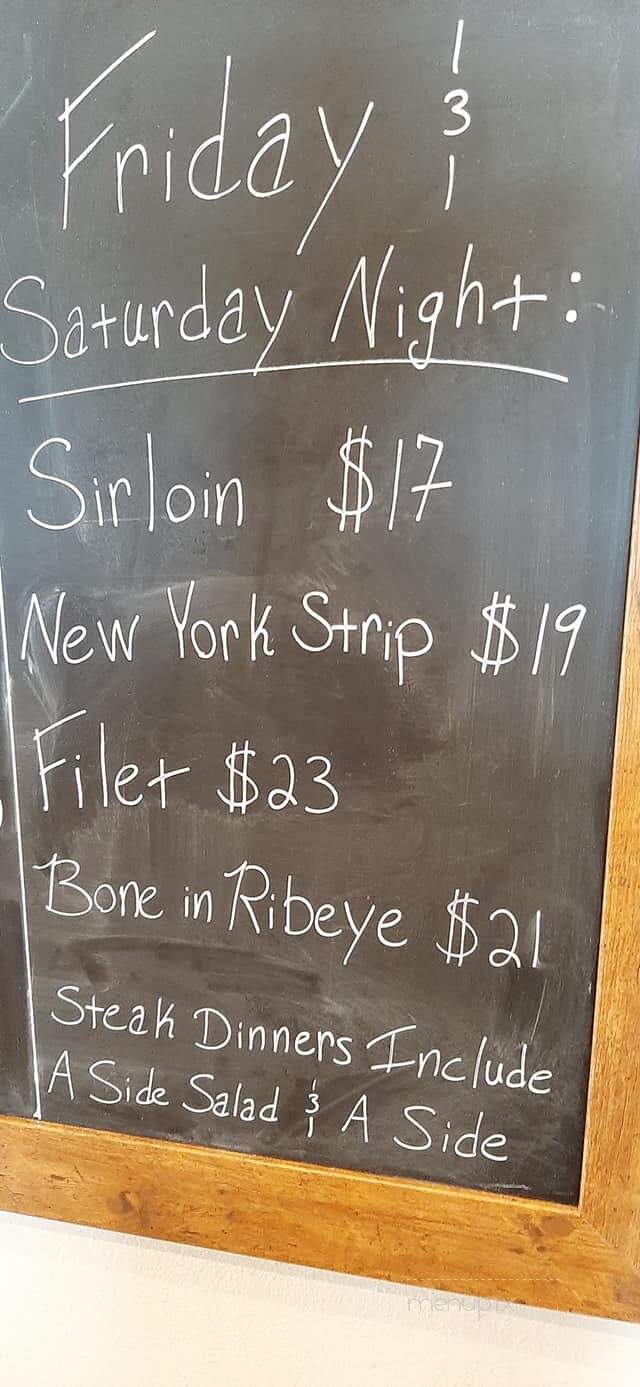 Friday &
Saturday Night:
Sirloin $17
New York Strip $19
Filet $23
Bone in Ribeye $21
Steak Dinners Include
A Side Salad & A Side
menupix